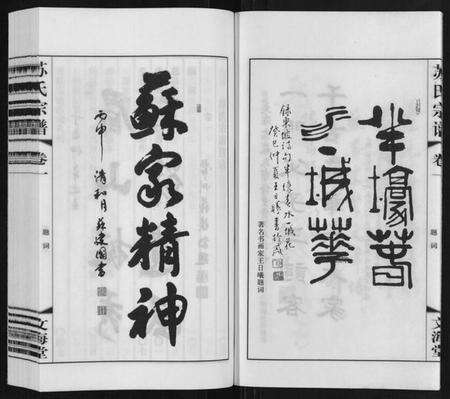 苏氏宗谱
卷一
题词
文海堂
半壕春
水一城華
录东坡诗句半壕春水一城花
癸巳仲夏王日曦书
著名书画家王日曦题词
蘇家精神
丙申清和月苏建国書
苏氏宗谱
卷一
题词
文海堂